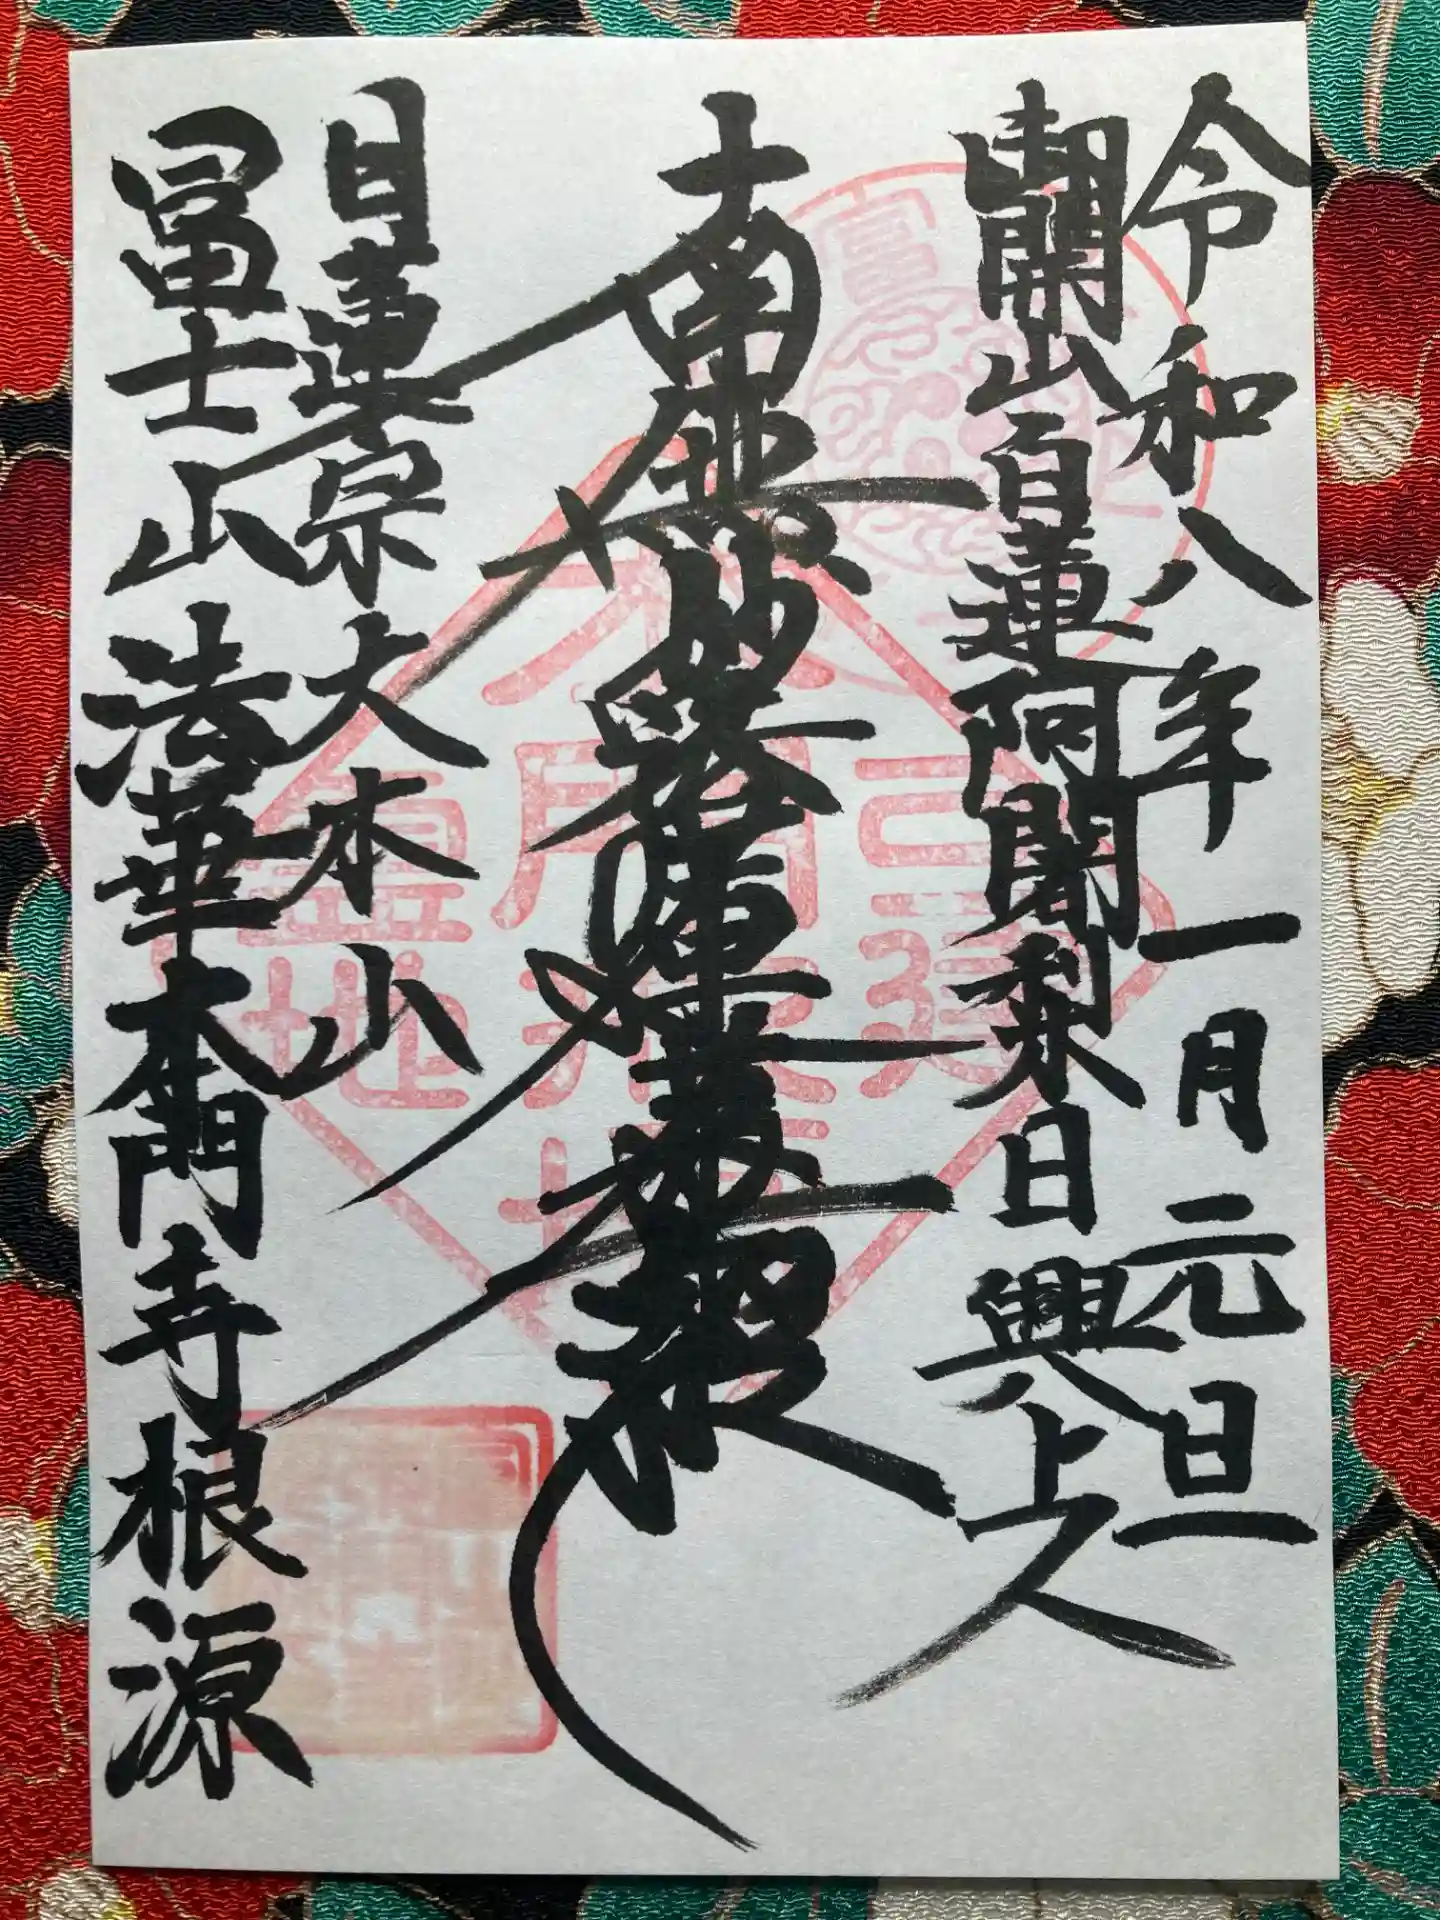 令和八年一月元旦
開山白蓮阿闍梨日興上人
南無妙法蓮華経
日蓮宗大本山
冨士山法華本門寺根源